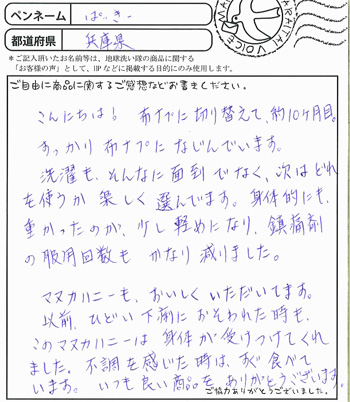 ペンネーム ぱっきー
都道府県 兵庫県
＊ご記入頂いたお名前等は、地球洗い隊の商品に関する
「お客様の声」として、HPなどに掲載する目的にのみ使用します。
ご自由に商品に関するご感想などお書きください。
こんにちは！ 布ナプに切り替えて、約10ヶ月目。
すっかり布ナプになじんでいます。
洗濯も、そんなに面倒でなく、次はどれ
を使うか楽しく選んでます。身体的にも、
重かったのが、少し軽めになり、鎮痛剤
の服用回数もかなり減りました。
マヌカハニーも、おいしくいただいてます。
以前、ひどい下痢におそわれた時も、
このマヌカハニーは身体が受けつけてくれ
ました。不調を感じた時は、すぐ食べて
います。いつも良い商品を、ありがとうございます。
ご協力ありがとうございました。